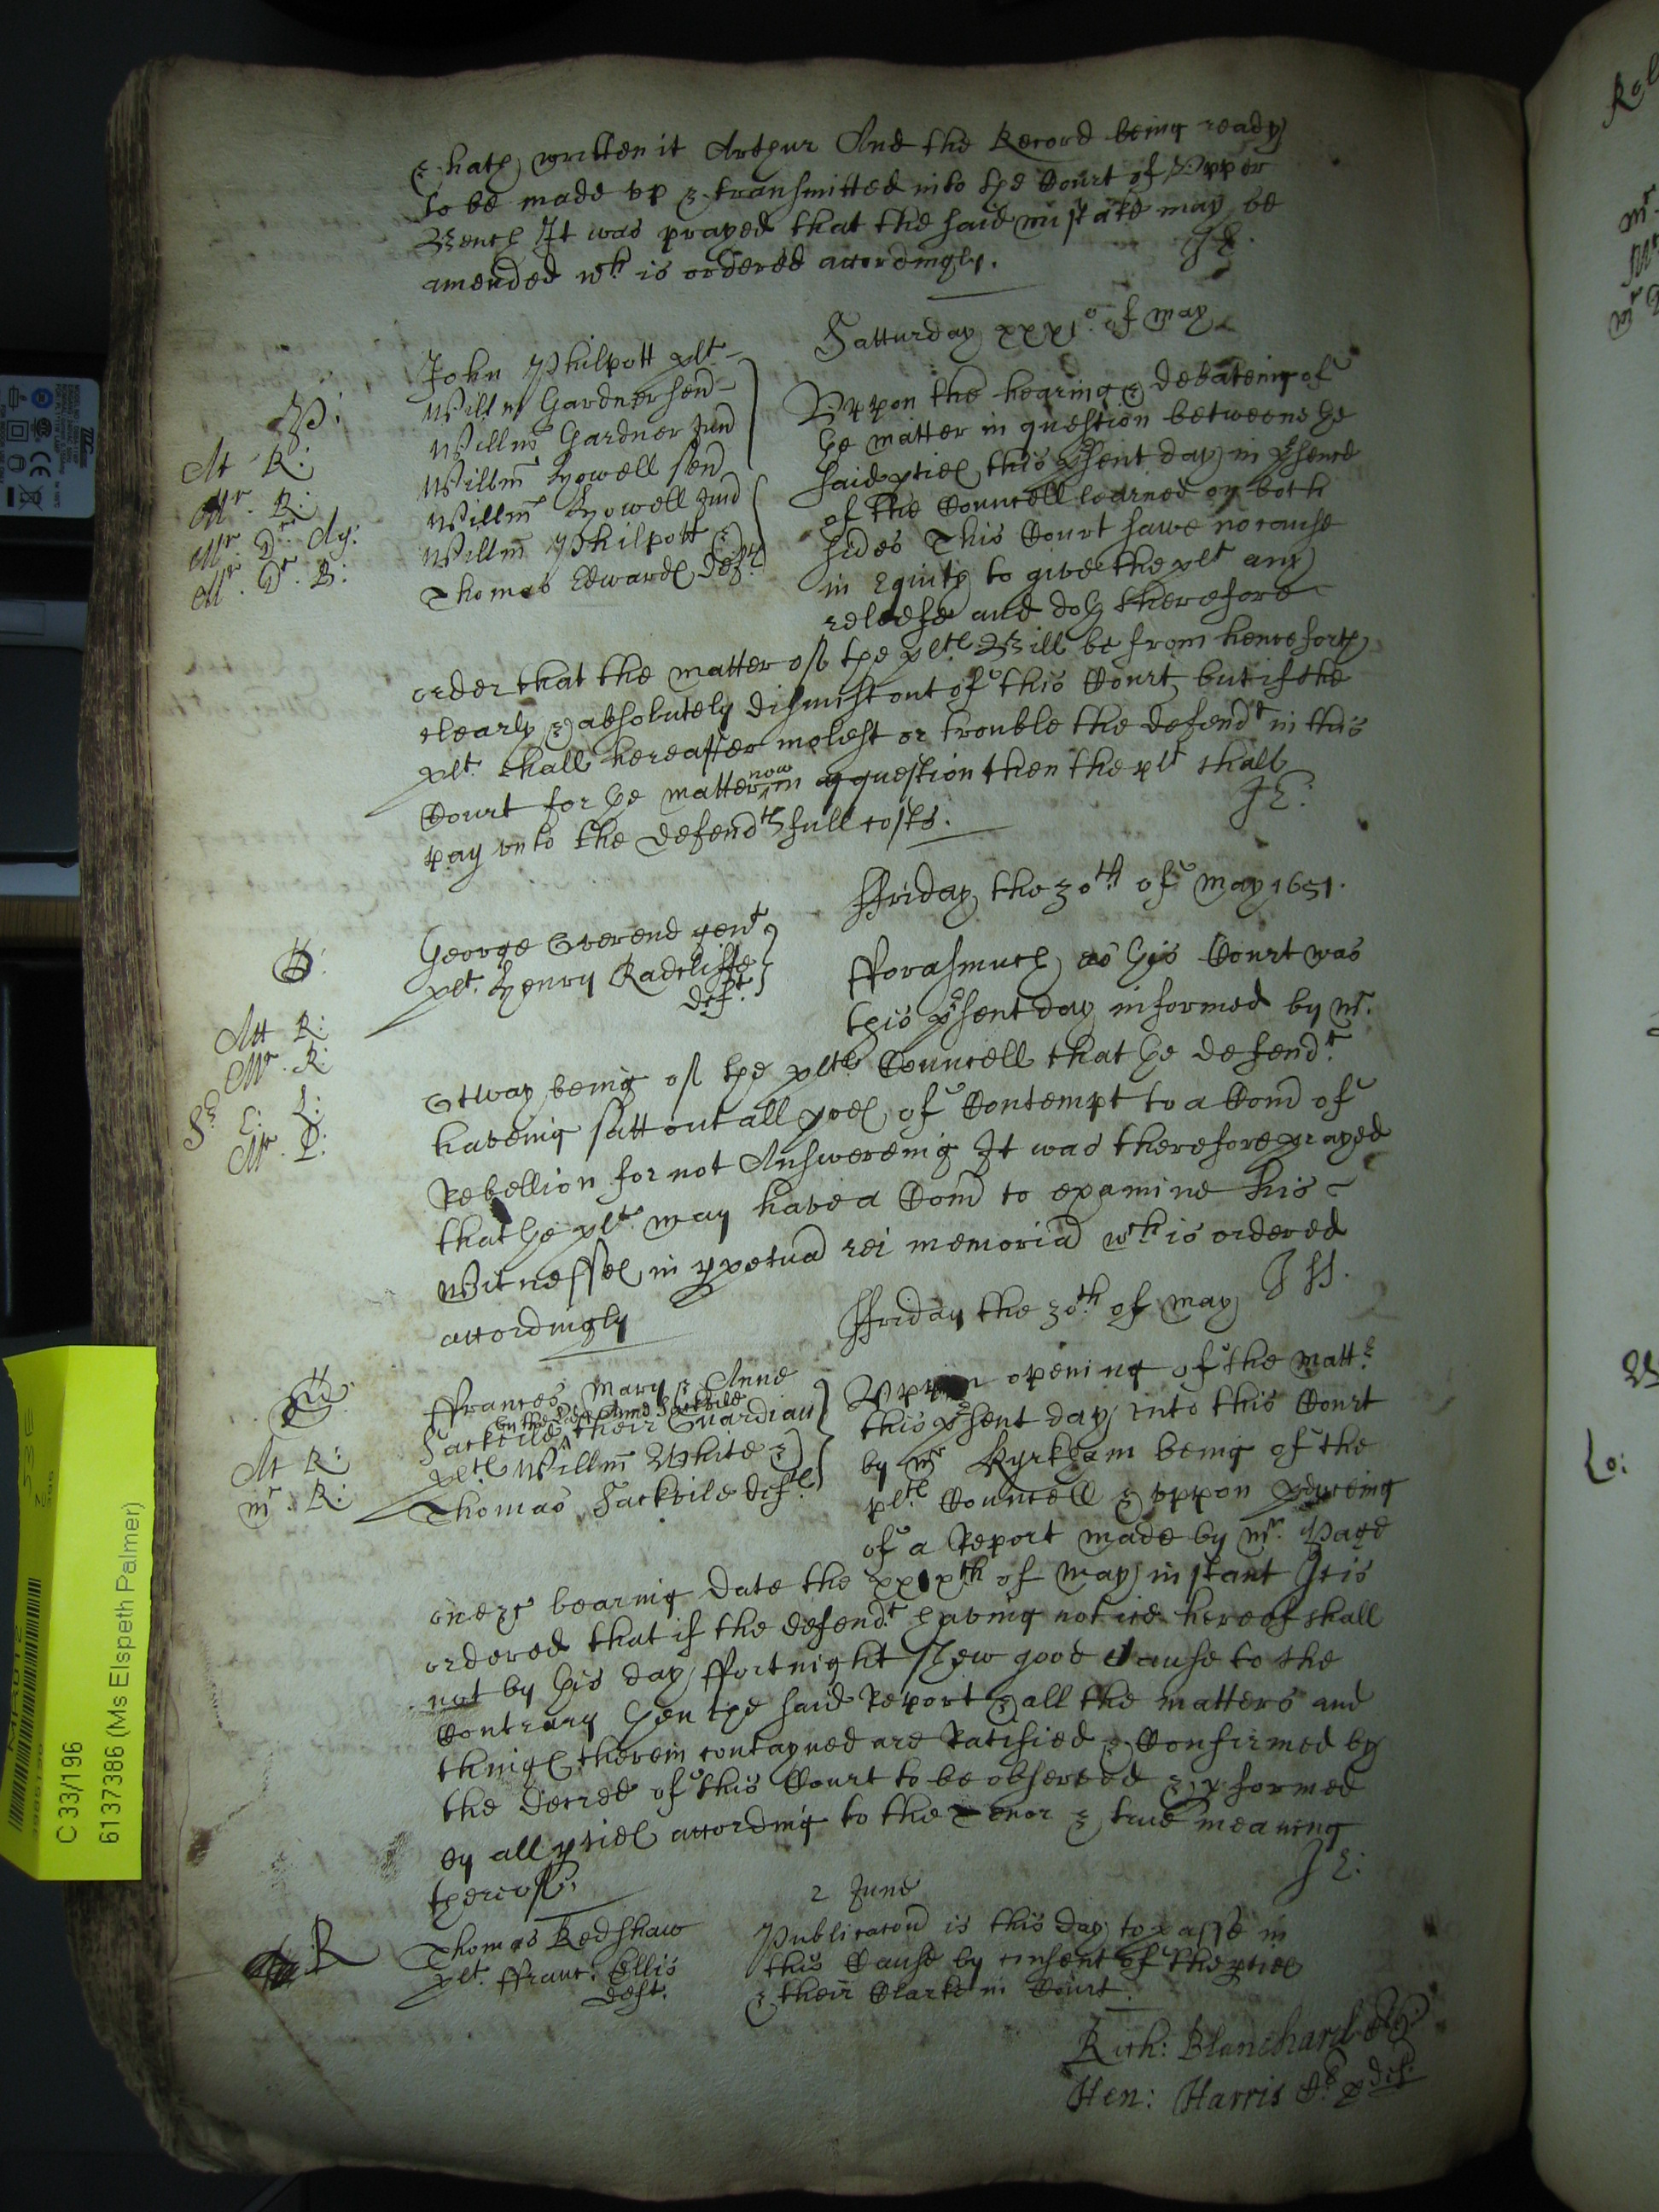 & hath written it Arthur And the Record being ready
to be made vp & transmitted into the Court of Vpper
Bench It was prayed that the said mistake may be
amended wch is ordered accordingly.
J E.
Satturday xxxjo of may
P:
At R:
Mr. R:
Mr. Dr Ay:
Mr. Dr. B:
John Philpott plt
Willm Gardner sen
Willm Gardner Jun
Willm Howell sen
Willm Howell Jun
Willm Philpott &
Thomas Edwards defts
Vppon the hearing & debateing of
the matter in question betweene the
said pties this psent day in psence
of the Councell learned on both
sides This Court sawe no cause
in Equity to give the plt any
releefe and doth therefore
order that the matter of the plts Bill be from henceforth
clearly & absolutely dismist out of this Court but if the
plt. shall hereafter molest or trouble the defendt in this
Court for the matter now in question then the plt shall
pay vnto the defendts full costs.
J E:
ffriday the 30th of May 1651.
Att R:
Mr. R
Sr E: L:
Mr. P:
George Overend gent
plt. Henry Radcliffe
deft.
fforasmuch as this Court was
this psent day informed by mr.
Otway being of the plts Councell that the defendt
haveing satt out all pces of Contempt to a Com of
Rebellion for not Answereing It was therefore prayed
that the plt may have a Com to examine his
Witnesses in ppetua rei memoria wch is ordered
accordingly
J H.
ffriday the 30th of may
At R:
mr. R:
ffrances Mary & Anne
Sackvile by the said Anne Sackvile their Guardian
plts Willm White &
Thomas Sackvile defts
Vppon opening of the mattr
this psent day into this Court
by mr Kyrkham being of the
plts Councell & vppon pduceing
of a Report made by mr. Page
one &c bearing date the xxixth of May instant It is
ordered that if the defendt haveing notice hereof shall
not by this day ffortnight shew good Cause to the
Contrary then the said Report & all the matters and
things therein contayned are Ratified & Confirmed by
the decree of this Court to be observed & pformed
by all pties according to the tenor & true meaning
thereof.
J E:
2 June
R
Thomas Redshaw
plt. ffranc. Ellis
deft.
Publicacon is this day to passe in
this Cause by consent of the pties
& their Clarks in Court.
Rich: Blanchard
Hen: Harris p def:
C 33/196
6137386 (Ms Elspeth Palmer)